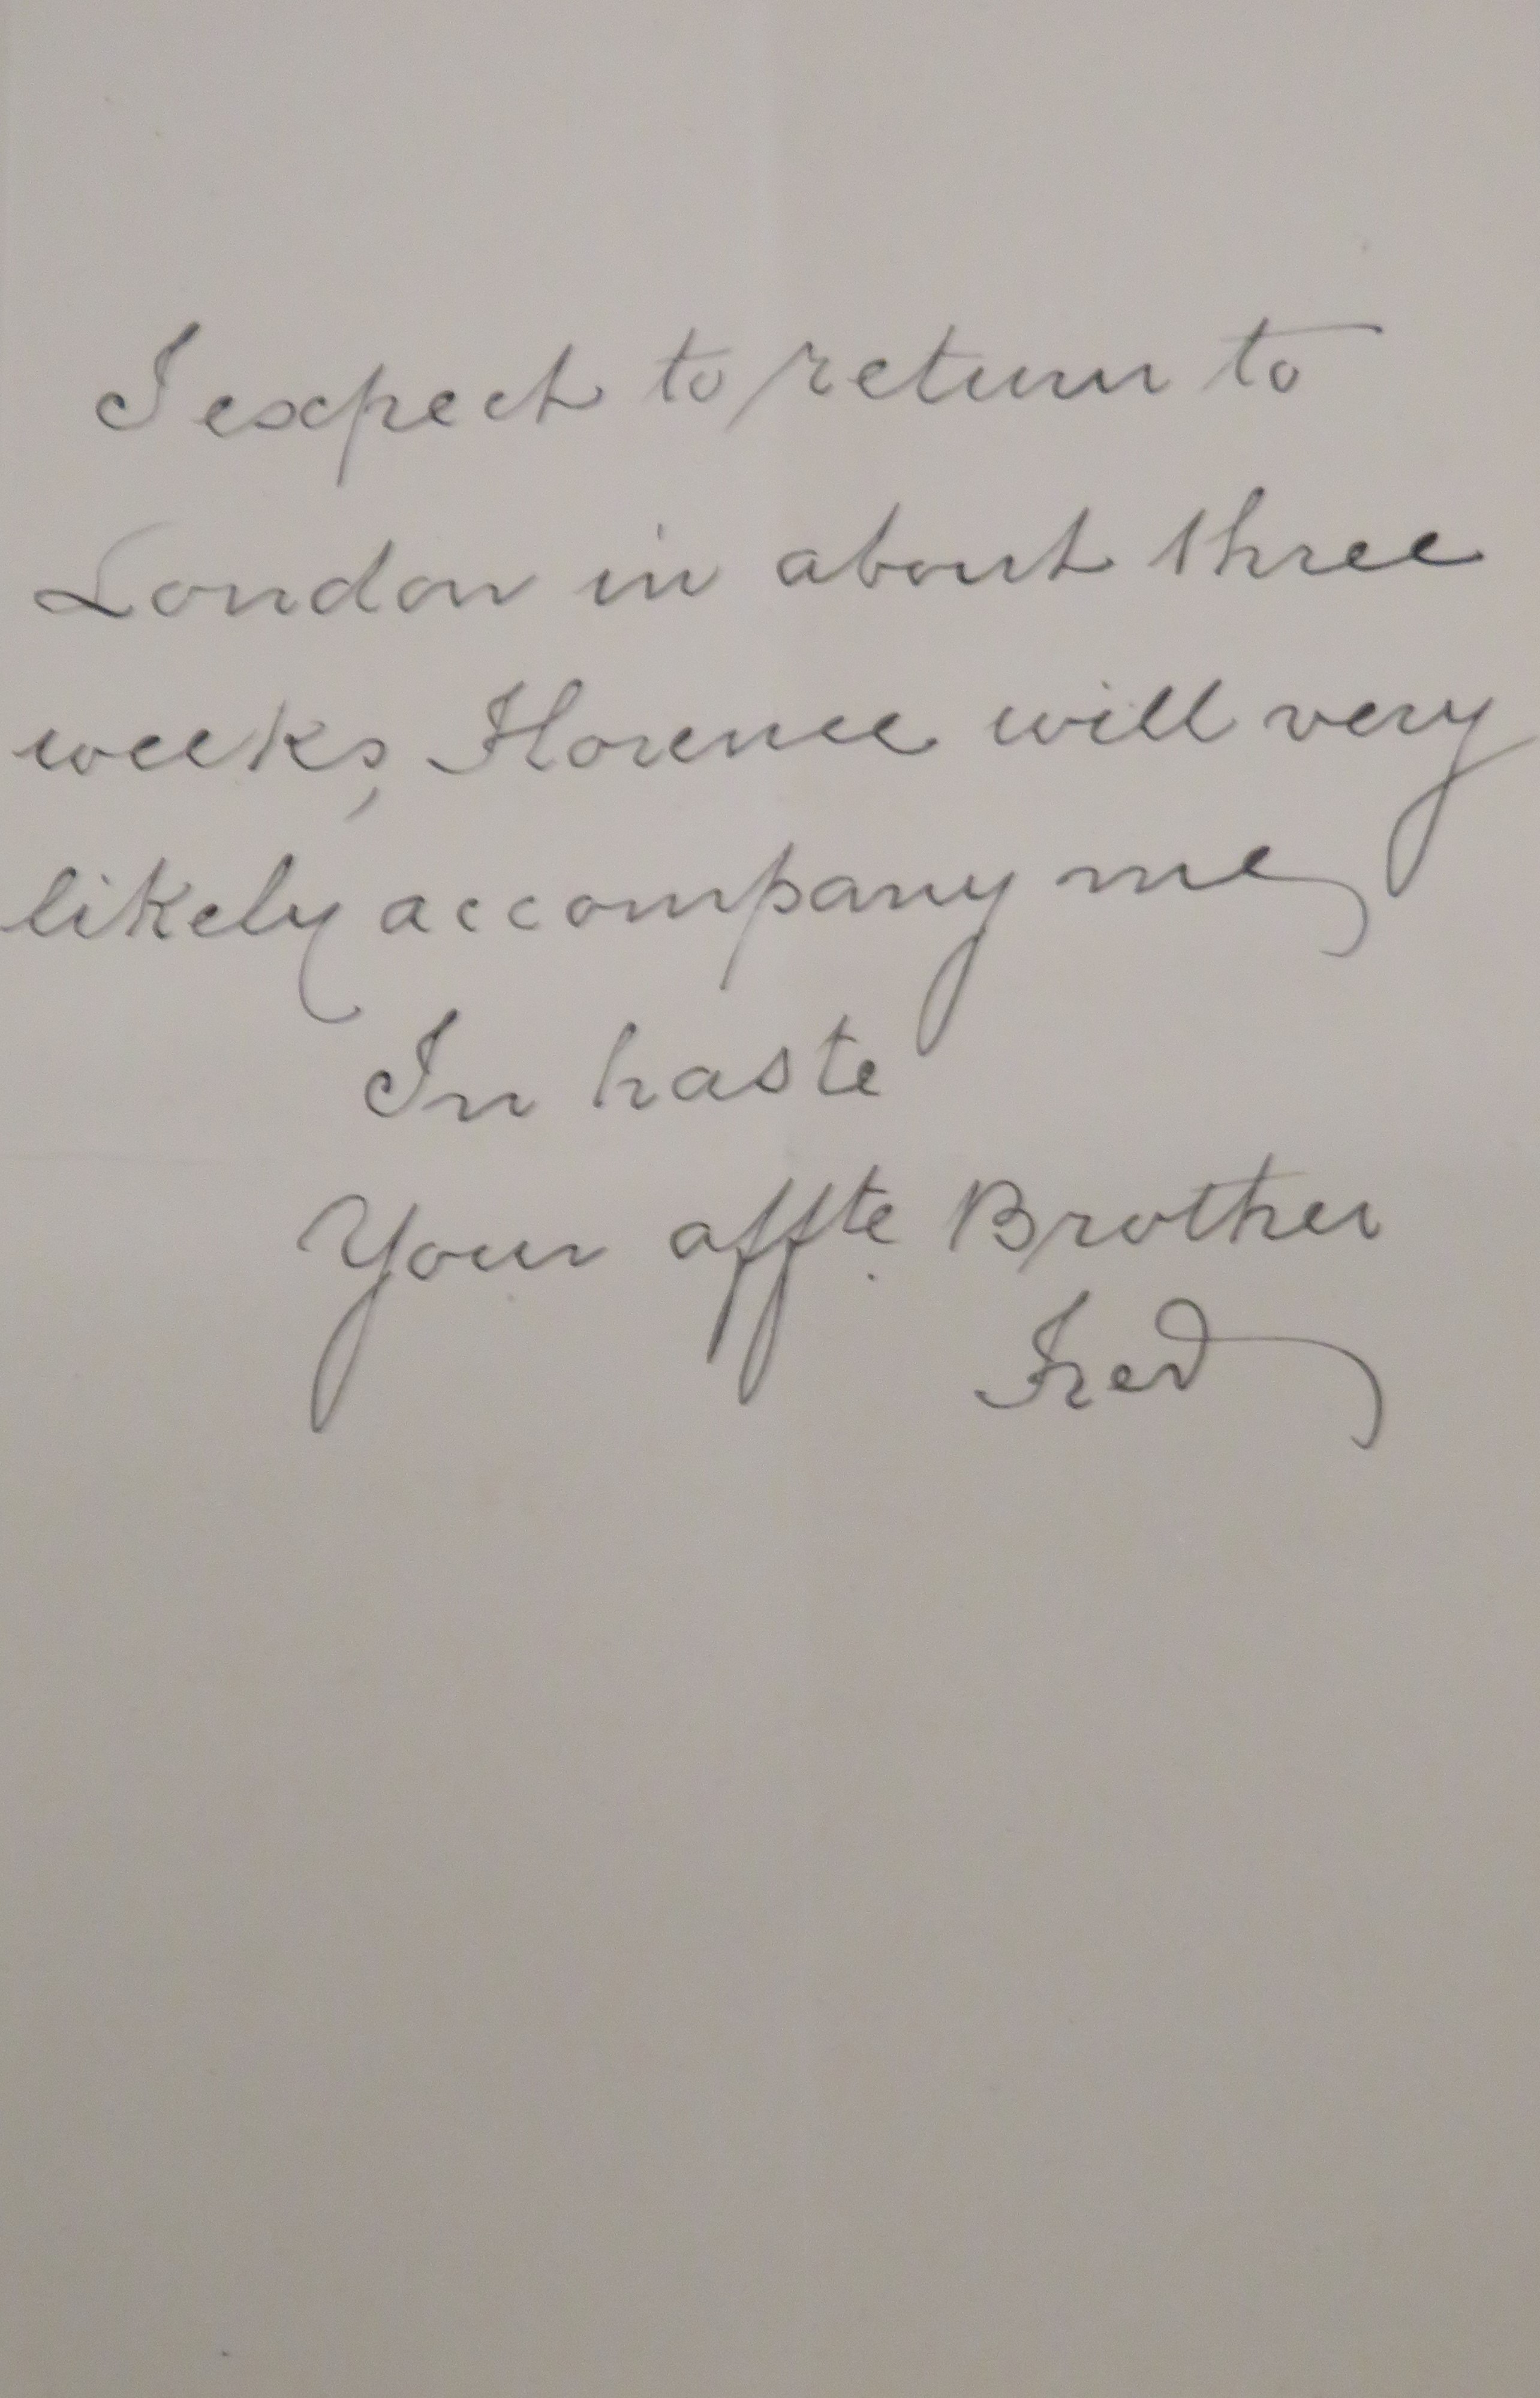 I expect to return to
London in about three
weeks, Florence will very
likely accompany me
In haste
Your affte Brother
Fred